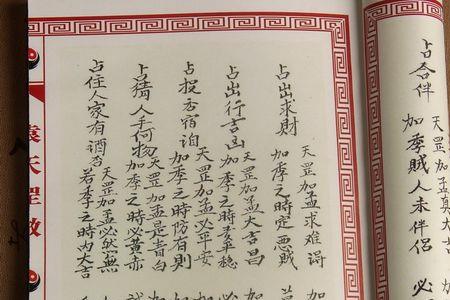 占合伴
天罡加孟真
加季賊人未伴侶 必
占出求財
天罡加孟求难得
加季之時定惡賊
加
占出行吉凶
天罡加孟大吉昌
加季之時平稳
加
占投宿
天罡加孟必平安
加季之時防有則
加
占猜人手何物
天罡加孟是青白
加季之時必黃赤
占往人家有酒否
天罡加孟必然無
若季之時內大吉
袁天罡數